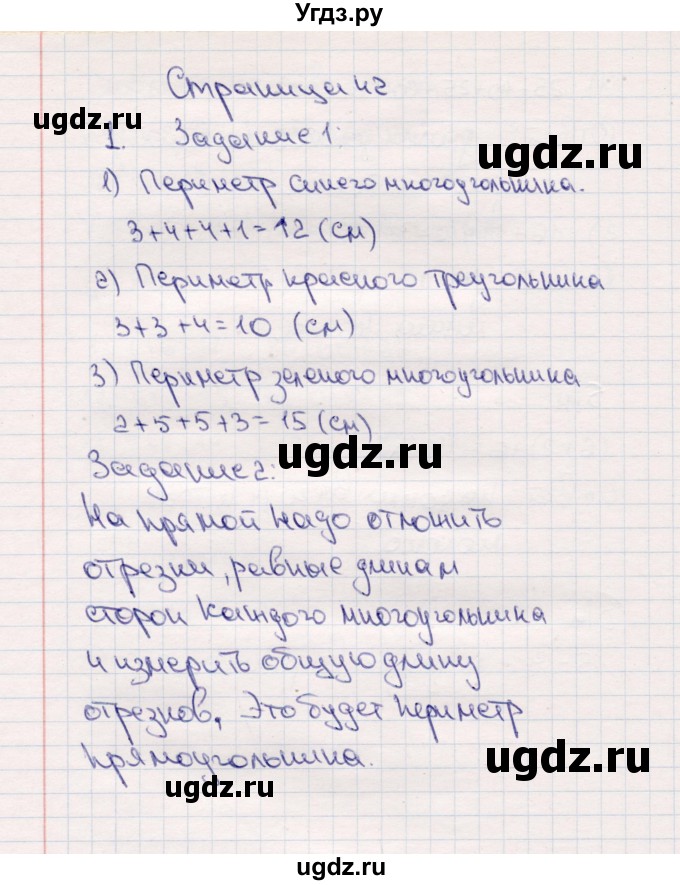 Угдз.ру
Страница 42
ugdz.ru
1. Задание 1:
ugdz.ru
1) Периметр синего многоугольника.
3+4+4+1=12 (см)
2) Периметр красного треугольника
3+3+4=10 (см)
3) Периметр зеленого многоугольника
2+5+5+3=15 (см)
ugdz.ru
Задание 2:
На прямой надо отложить
отрезки, равные длинам
сторон каждого многоугольника
и измерить общую длину
отрезков, Это будет периметр
прямоугольника.
ugdz.ru
ugdz.ru
ugdz.ru